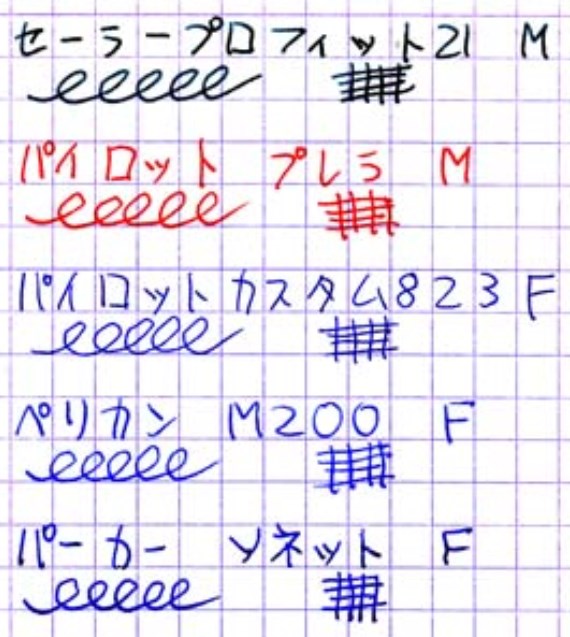 セーラープロフィット21 M
パイロット プレラ M
パイロットカスタム823 F
ペリカン M200 F
パーカー ソネット F